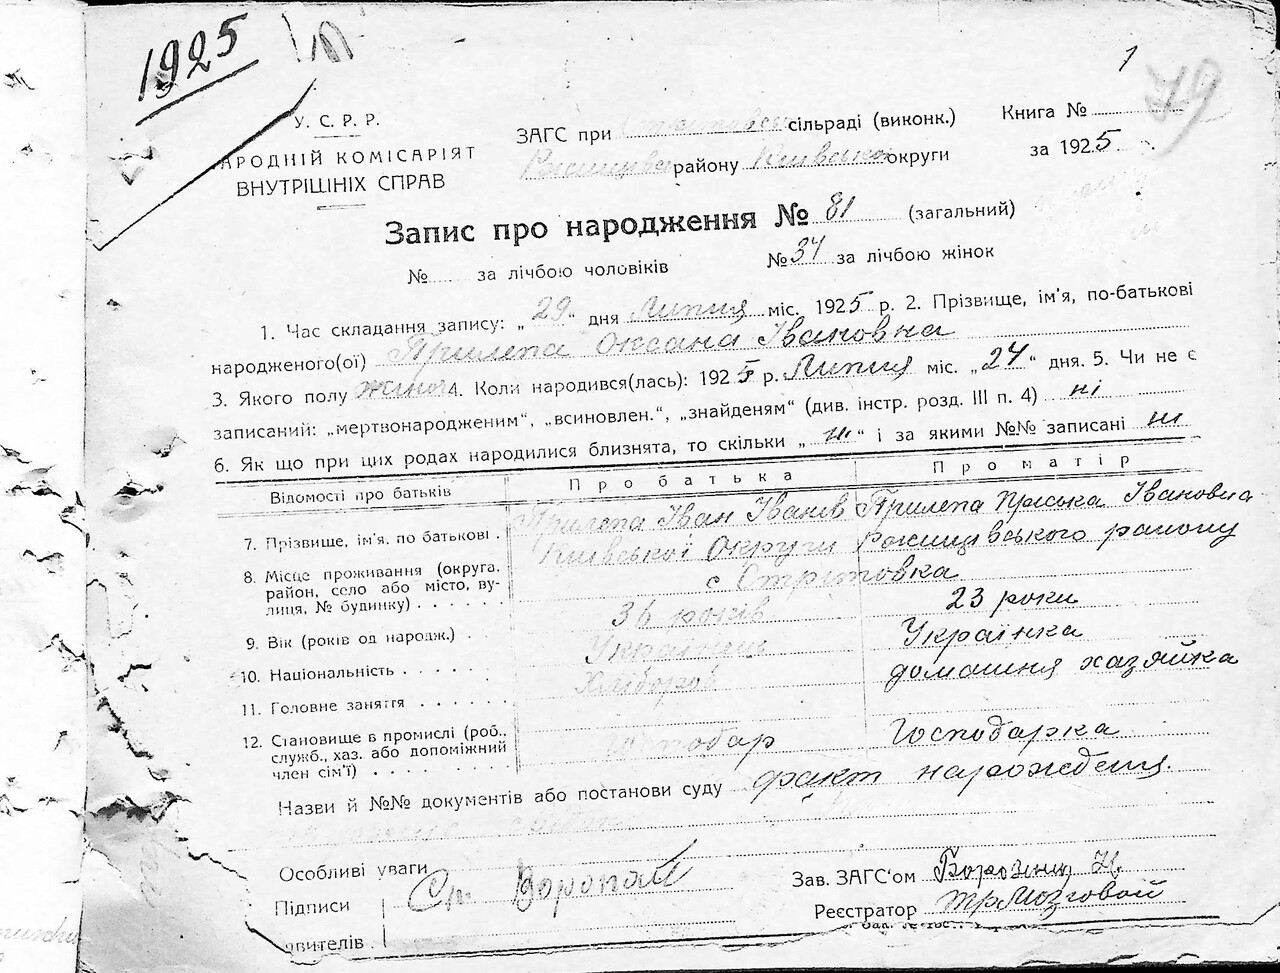 1925
1
79
У. С. Р. Р.
АРОДНІЙ КОМІСАРІЯТ
ВНУТРІШНІХ СПРАВ
ЗАГС при сільраді (виконк.)
району Київської округи
Книга №
за 1925
Запис про народження № 81 (загальний)
№ за лічбою чоловіків № 34 за лічбою жінок
1. Час складання запису: „29“ дня Липня міс. 1925 р. 2. Прізвище, ім'я, по-батькові
народженого(ої) Прилепа Оксана Івановна
3. Якого полу жіноч 4. Коли народився(лась): 1925 р. Липня міс. „24“ дня. 5. Чи не є
записаний: „мертвонародженим“, „всиновлен.“, „знайденям“ (див. інстр. розд. III п. 4) ні
6. Як що при цих родах народилися близнята, то скільки „ні“ і за якими №№ записані ні
Відомості про батьків
Про батька
Про матір
7. Прізвище, ім'я, по батькові .
Прилепа Іван Іванів
Прилепа Пріська Івановна
8. Місце проживання (округа, район, село або місто, вулиця, № будинку)
Київської Округи Ржищівського району
с Стритовка
9. Вік (років од народж.) .
36 років
23 роки
10. Національність .
Українець
Українка
11. Головне заняття
Хлібороб
домашня хазяйка
12. Становище в промислі (роб., служб., хаз. або допоміжний член сім'ї)
Господар
Господарка
Назви й №№ документів або постанови суду факт нарождения
Особливі уваги
Підписи
явителів
Ст. Воропай
Зав. ЗАГС'ом
Реєстратор Мозговой